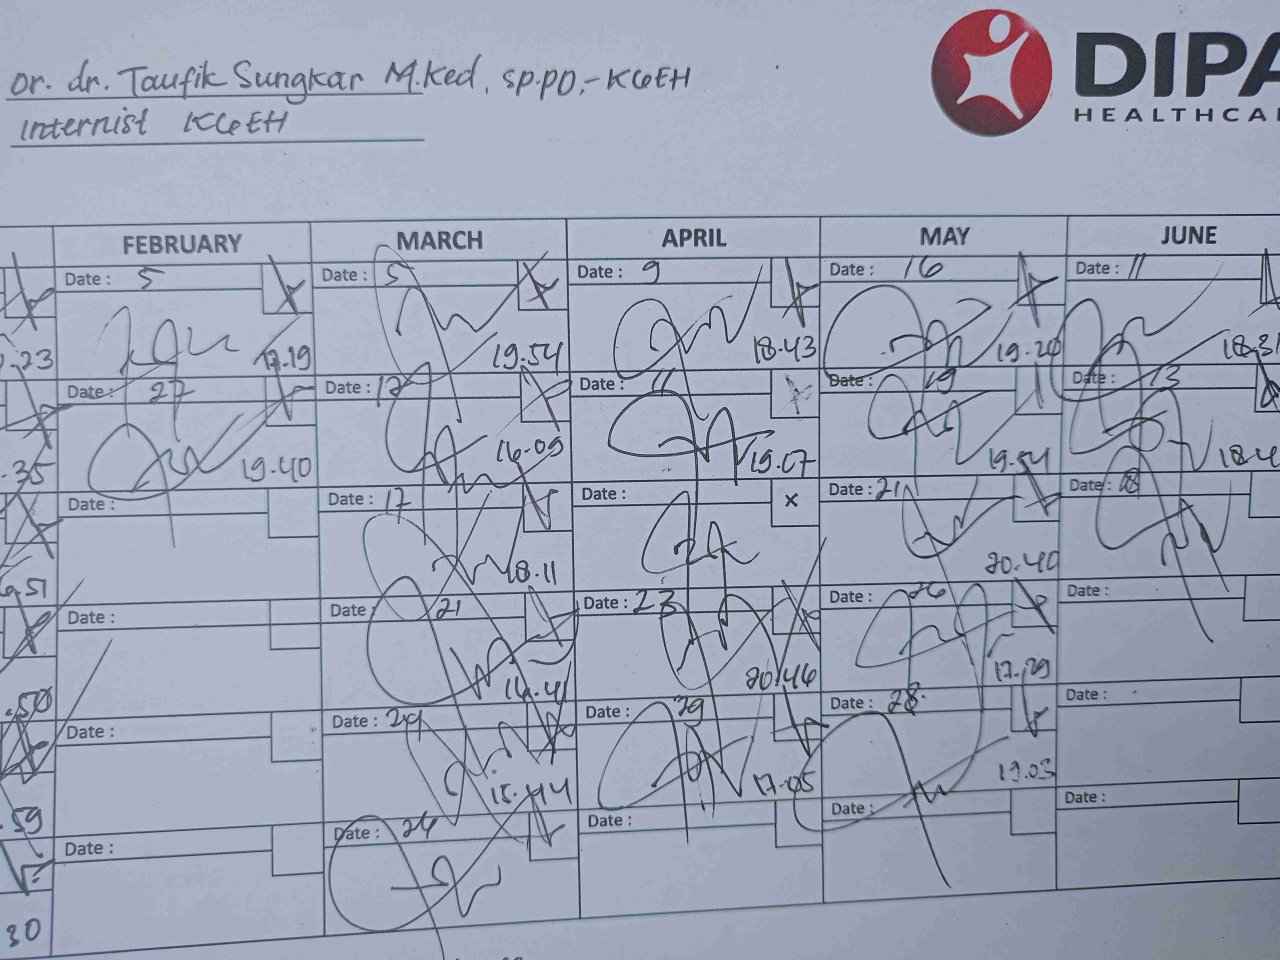 Dr. dr. Taufik Sungkar M.Ked, Sp.PD,-KGEH
DIPA
Internist KGEH
HEALTHCA
FEBRUARY MARCH APRIL MAY JUNE
Date : 5 Date : 5 Date : 9 Date : 16 Date : 11
.23 17.19 19.54 18.43 19.20 18.31
Date : 27 Date : 12 Date : 11 Date : 19 Date : 13
.35 19.40 16.09 19.07 19.54 18.4
Date : Date : 17 Date : x Date : 21 Date : 18
.51 18.11 20.40
Date : Date : 21 Date : 23 Date : 26 Date :
.50 16.41 20.46 17.29
Date : Date : 24 Date : 29 Date : 28 Date :
.59 15.44 17.05 19.03
Date : Date : 26 Date : Date : Date :
30